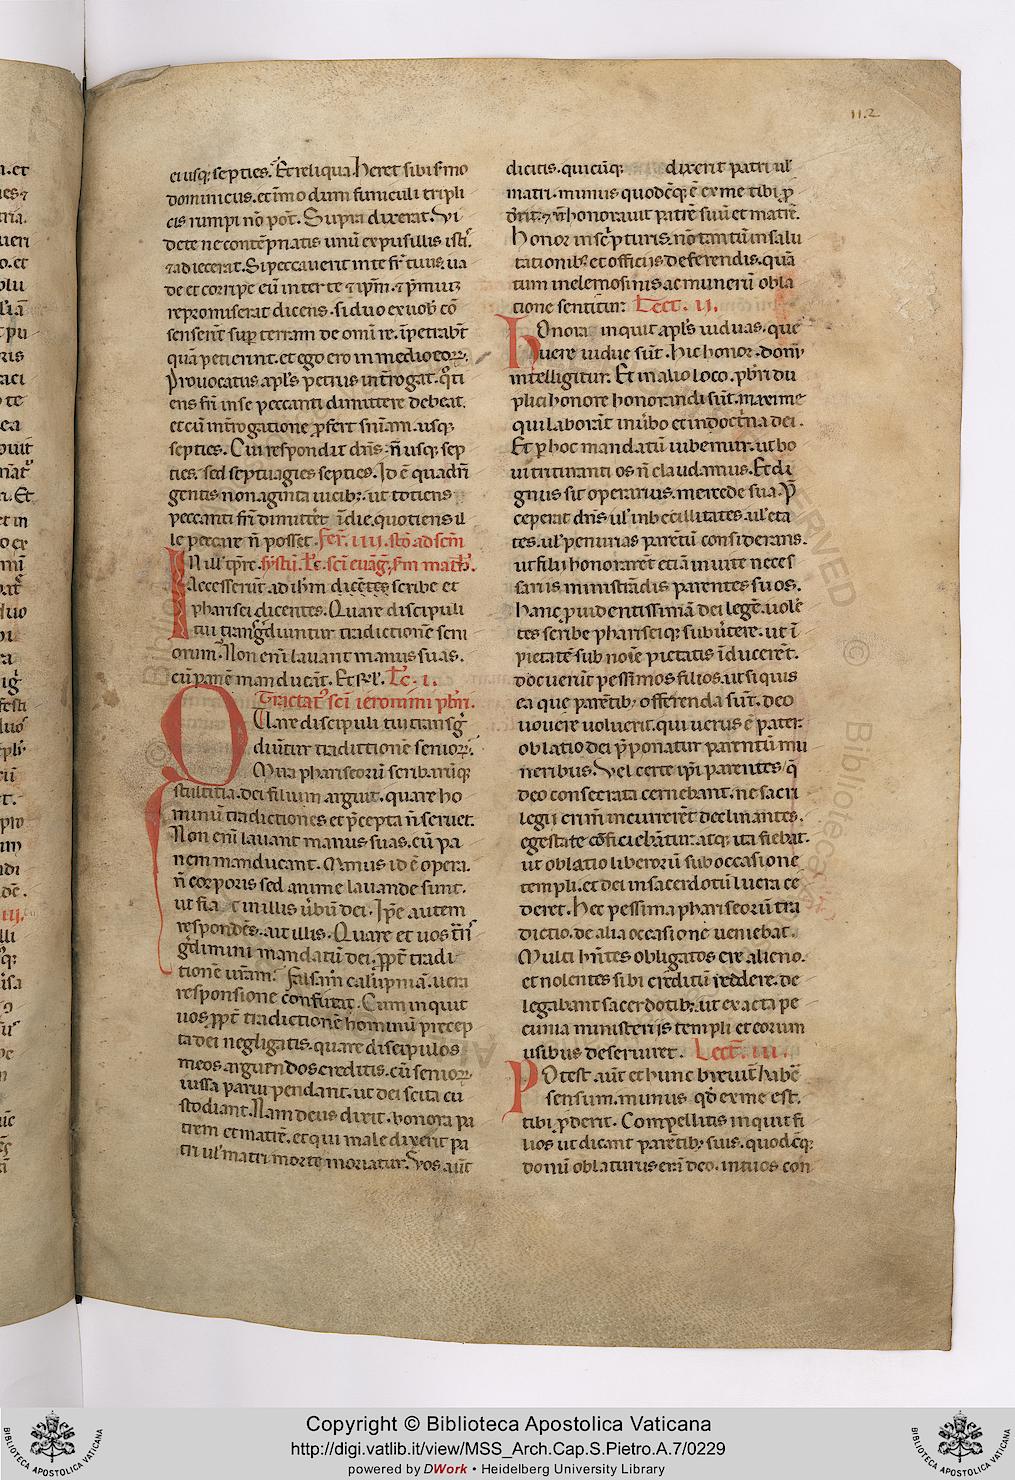 112
ei usq; septies. Et reliqua. heret sibi smo
dominicus. et in modum funiculi tripli
cis rumpi nō pōt. Supra dixerat. Vi
dete ne contēpnatis unū ex pusillis istis.
⁊ adiecerat. Si peccaverit in te fr̄ tuus. ua
de et corripe eū inter te ⁊ ip̄m. ⁊ p̄miuȝ
repromiserat dicens. si duo ex uob̄ cō
senserīt sup terram de omī re. īpetrabt̄
quā petierint. et ego ero in medio eoꝝ.
Provocatus apl̄s petrus int̄rogat. q̄ti
ens frī in se peccanti dimittere debeat.
et cū int̄rogatione ꝓfert sn̄iam. usq;
septies. Cui respondit dn̄s. n̄ usq; sep
ties. sed septuagies septies. Id ē quadrī
gentis nonaginta uicib;. ut totiens
peccanti frī dimittēt ī die. quotiens il
le peccare n̄ posset. Fer. IIII. stō ad scm̄
IN ill' tp̄re. Lc̄. scī euāg. sm̄ math'.
Accesserūt ad ih̄m dicētes scribe et
pharisei dicentes. Quare discipuli
tui transḡdiuntur tradictionē seni
orum. Non enī lavant manus suas.
cū panē manducāt. Et Rl'. Lc̄. I.
Tractat' scī ieronimi pbr̄i.
QUare discipuli tui transḡ
diūtur tradictionē senioꝝ.
Mira phariseorū scribarūq;
stultitia. dei filium arguit. quare ho
minū tradictiones et p̄cepta n̄ servet.
Non enī lavant manus suas. cū pa
nem manducant. Manus id ē opera.
n̄ corporis sed anime lavande sunt.
ut fiat in illis ūbū dei. Ip̄e autem
respondēs. ait illis. Quare et uos t̄n̄s
ḡdimini mandatū dei. ꝓpt̄ tradi
tionē ur̄am. Falsam calūpniā. uera
responsione confutat. Cum inquit
uos ꝓpt̄ tradictionē hominū precep
ta dei negligatis. quare discipulos
meos arguendos creditis. cū senioꝝ
iussa parui pendant. ut dei scita cu
stodiant. Nam deus dixit. honora pa
trem et matrē. et qui male dixerit pa
tri ul' matri morte moriatur. Vos aūt
dicitis. quicūq; dixerit patri ul'
matri. munus quodcūq; ē ex me tibi ꝓ
derit. ⁊ n̄ honoravit patrē suū et matrē.
Honor in sc̄pturis. nō tantū in salu
tationib; et officiis deferendis. quā
tum in elemosinis ac munerū obla
tione sentitur. Lect. II.
Honora inquit apl̄s uiduas. que
uere uidue sūt. hic honor. donū
intelligitur. Et in alio loco. pbr̄i du
plici honore honorandi sūt. maxime
qui laborāt in ūbo et in doctrina dei.
Et ꝑ hoc mandatū iubemur. ut bo
vi trituranti os n̄ claudamus. Et di
gnus sit operarius. mercede sua. P̄
ceperat dn̄s ul' inbecillitates. ul' eta
tes. ul' penurias parētū considerans.
ut filii honorarēt etiā in uite neces
sariis ministrādis parentes suos.
hanc ꝓuidentissimā dei legē. uolē
tes scribe phariseiq; subūtere. ut ī
pietatē sub noīe pietatis īducerēt.
docuerūt pessimos filios. ut si quis
ea que parētib; offerenda sūt. deo
uouere uoluerit. qui uerus ē pater.
oblatio dei p̄ponatur parentū mu
neribus. Vel certe ip̄i parentes q̄
deo consecrata cernebant. ne sacri
legii crimē incurrerēt declinantes.
egestate cōficiebātur. atq; ita fiebat.
ut oblatio liberorū sub occasione
templi. et dei in sacerdotū lucra ce
deret. hec pessima phariseorū tra
dictio. de alia occasione veniebat.
Multi hn̄tes obligatos ere alieno.
et nolentes sibi crēditū reddere. de
legabant sacerdotib;. ut exacta pe
cunia ministeriis templi et eorum
usibus deserviret. Lect. III.
POtest aūt et hunc breviter habē
sensum. munus qd̄ ex me est.
tibi ꝓderit. Compellitis inquit fi
lios ut dicant parētib; suis. quodcūq;
donū oblaturus erā deo. in tuos con
Copyright © Biblioteca Apostolica Vaticana
http://digi.vatlib.it/view/MSS_Arch.Cap.S.Pietro.A.7/0229
powered by DWork • Heidelberg University Library
BIBLIOTECA APOSTOLICA VATICANA
BIBLIOTECA APOSTOLICA VATICANA